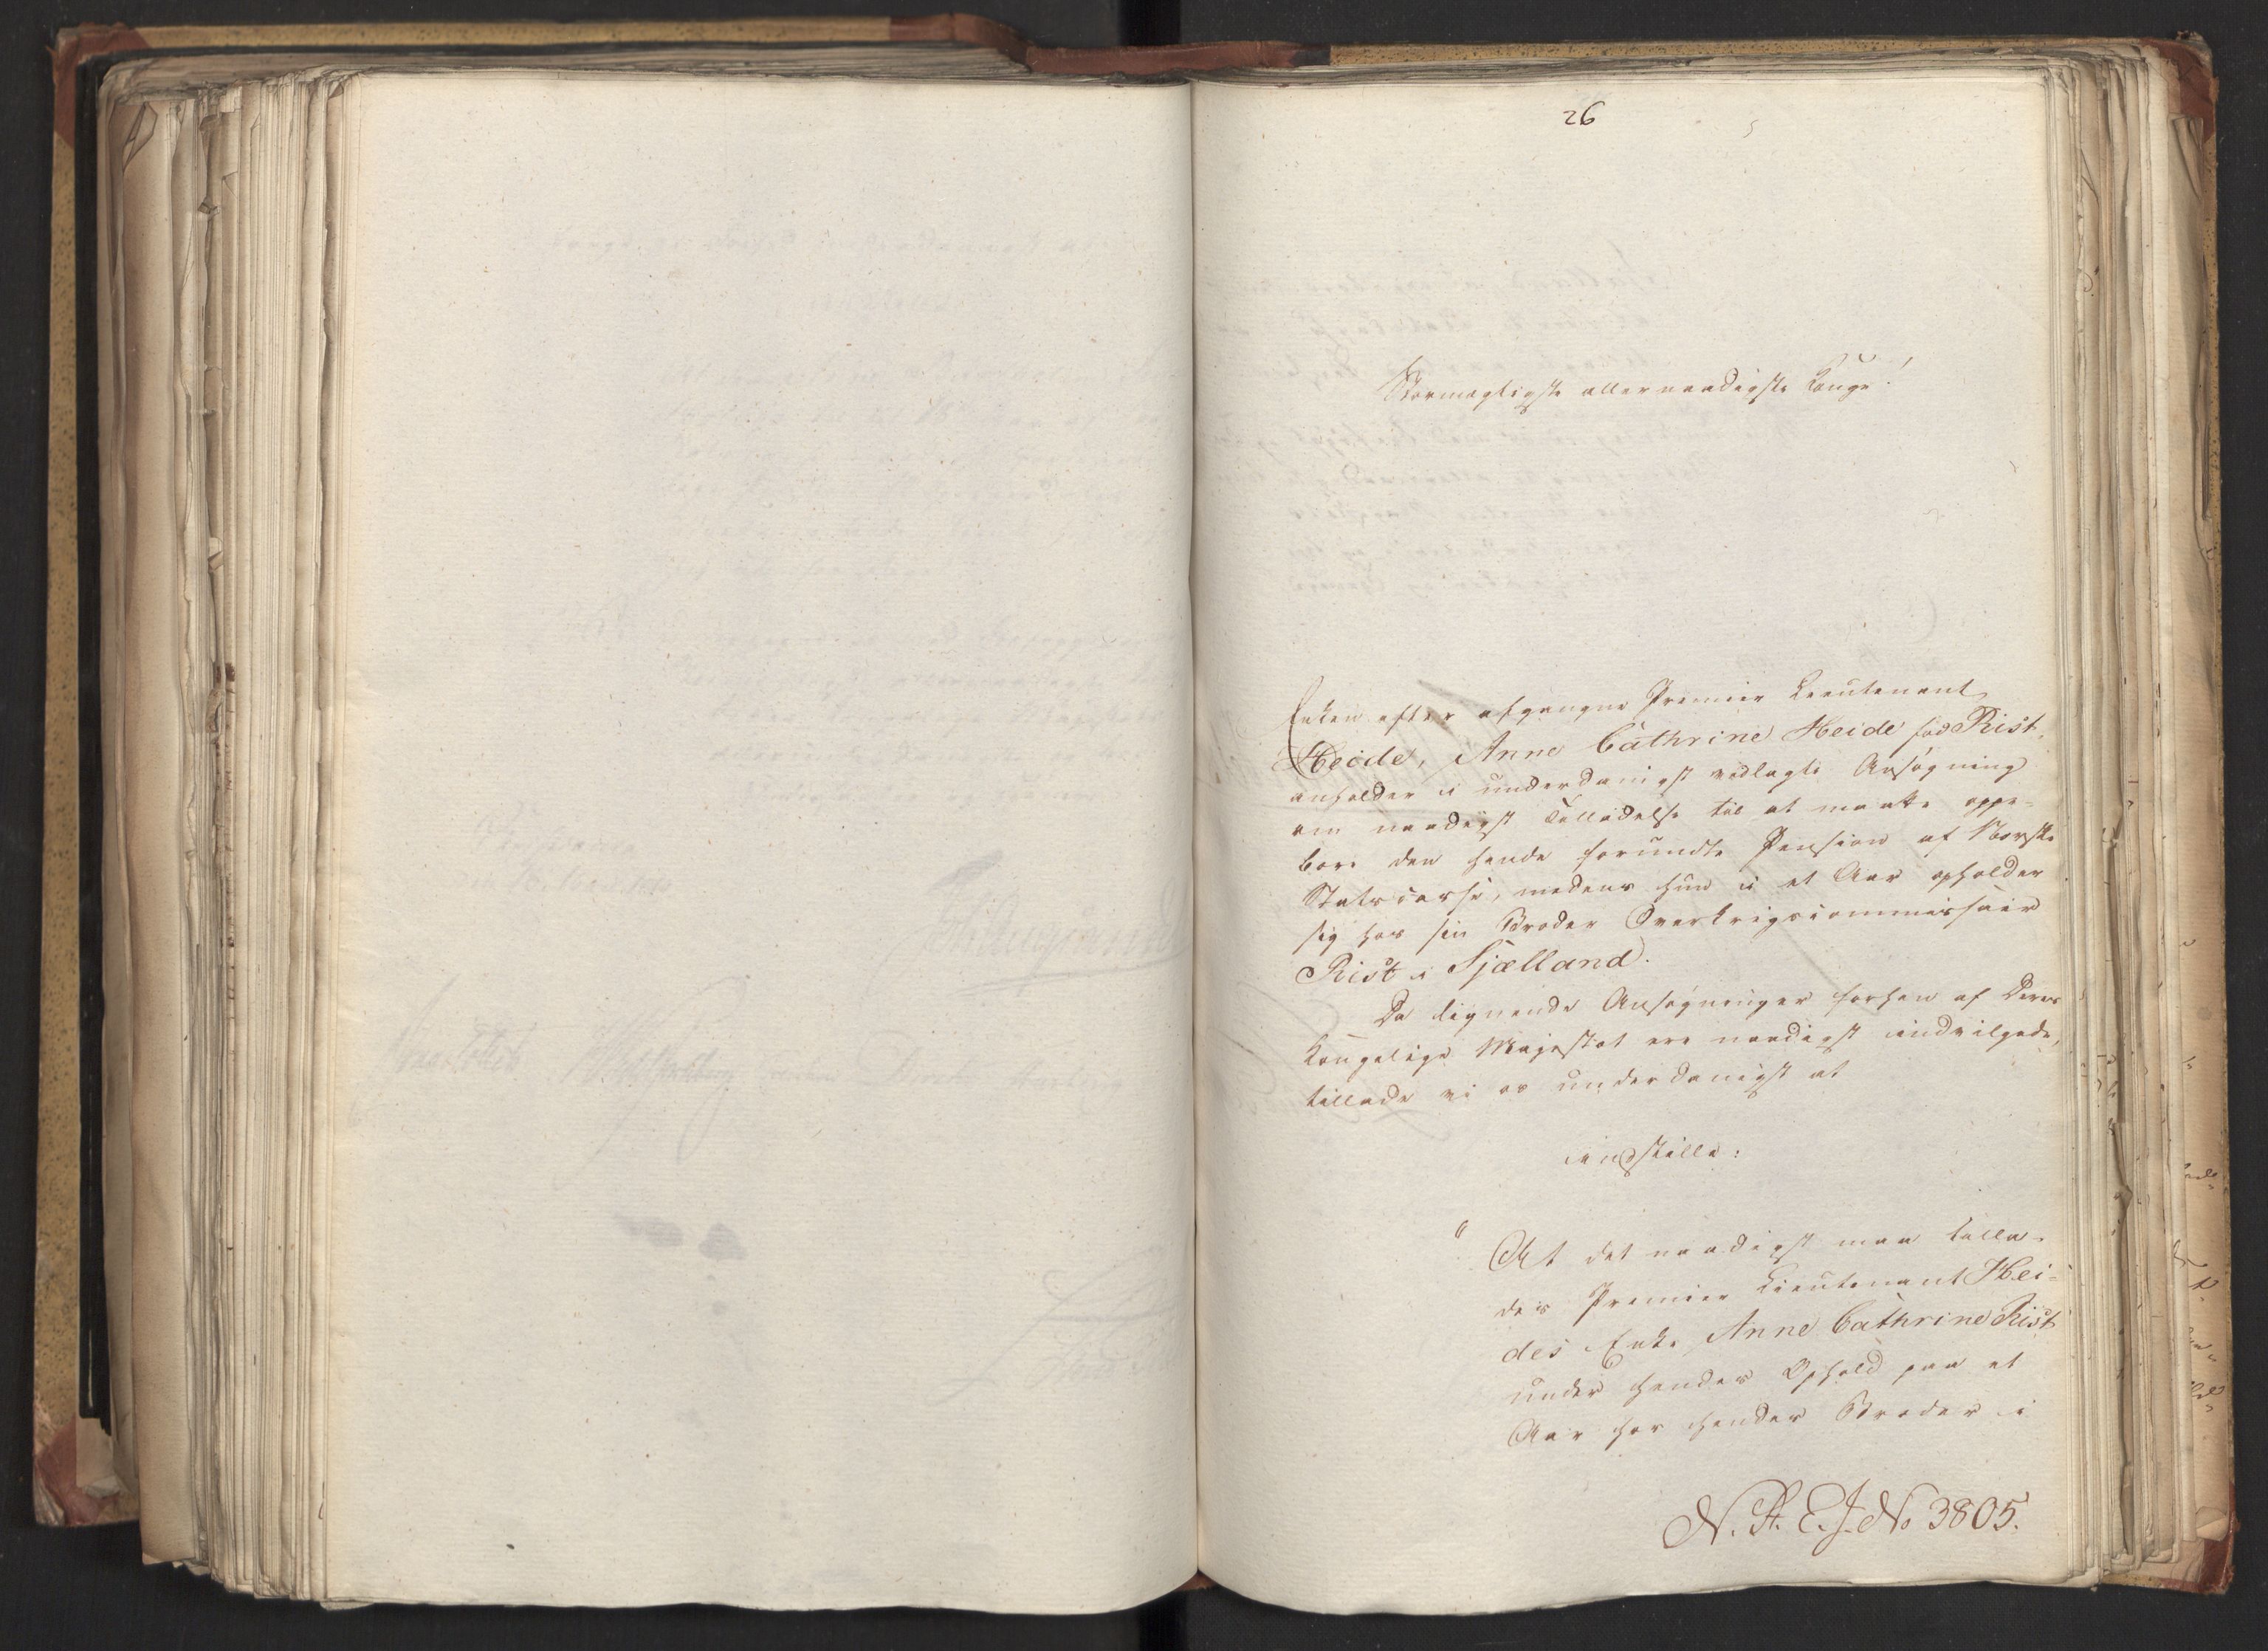 26
Stormægtigste allernaadigste Konge!
Enken efter afgangne Premier Lieutenant
Heide, Anne Cathrine Heide fød Rist,
anholder i underdanigst vedlagte Ansøgning
om naadigst Tilladelse til at maatte oppe-
bære den hende forundte Pension af Norske
Statscasse, medens hun i et Aar opholder
sig hos sin Broder Overkrigscommissair
Rist i Sjælland.
Da lignende Ansøgninger forhen af Deres
Kongelige Majestæt ere naadigst indvilgede,
tillade vi os underdanigst at
indstille:
" At det naadigst maa tilla-
des Premier Lieutenant Hei-
des Enke Anne Cathrine Rist
under hendes Ophold paa et
Aar hos hendes Broder i
N. A. E. J. No 3805.